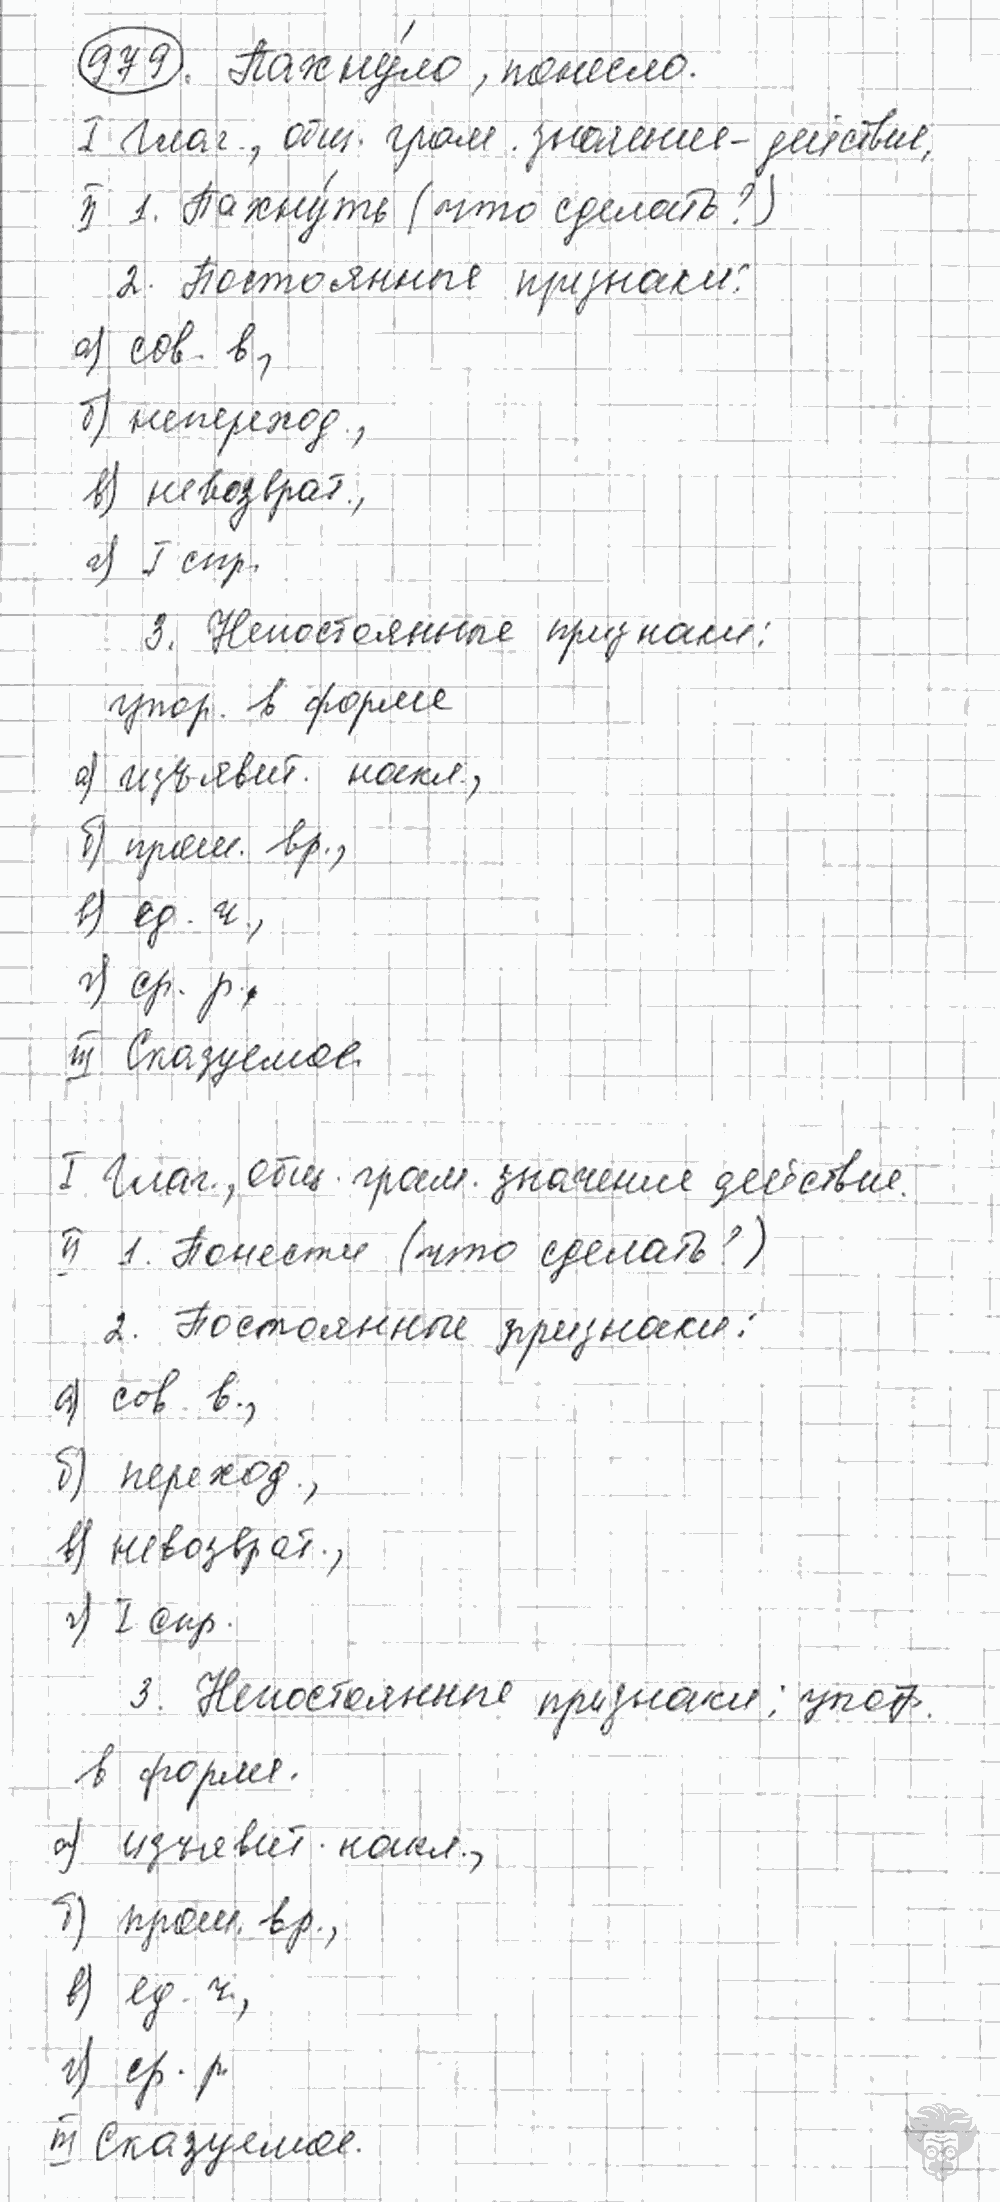 979. Пахну́ло, понесло.
I Глаг., общ. грам. значение – действие,
II 1. Пахну́ть (что сделать?)
2. Постоянные признаки:
а) сов. в,
б) непереход.,
в) невозврат.,
г) I спр.
3. Непостоянные признаки:
упор. в форме
а) изъявит. накл.,
б) прош. вр.,
в) ед. ч.,
г) ср. р.,
III Сказуемое.
I Глаг., общ. грам. значение действие.
II 1. Понести (что сделать?)
2. Постоянные признаки:
а) сов в.,
б) переход.,
в) невозврат.,
г) I спр.
3. Непостоянные признаки: упот.
в форме.
а) изъявит. накл.,
б) прош. вр.,
в) ед. ч.,
г) ср. р
III Сказуемое.